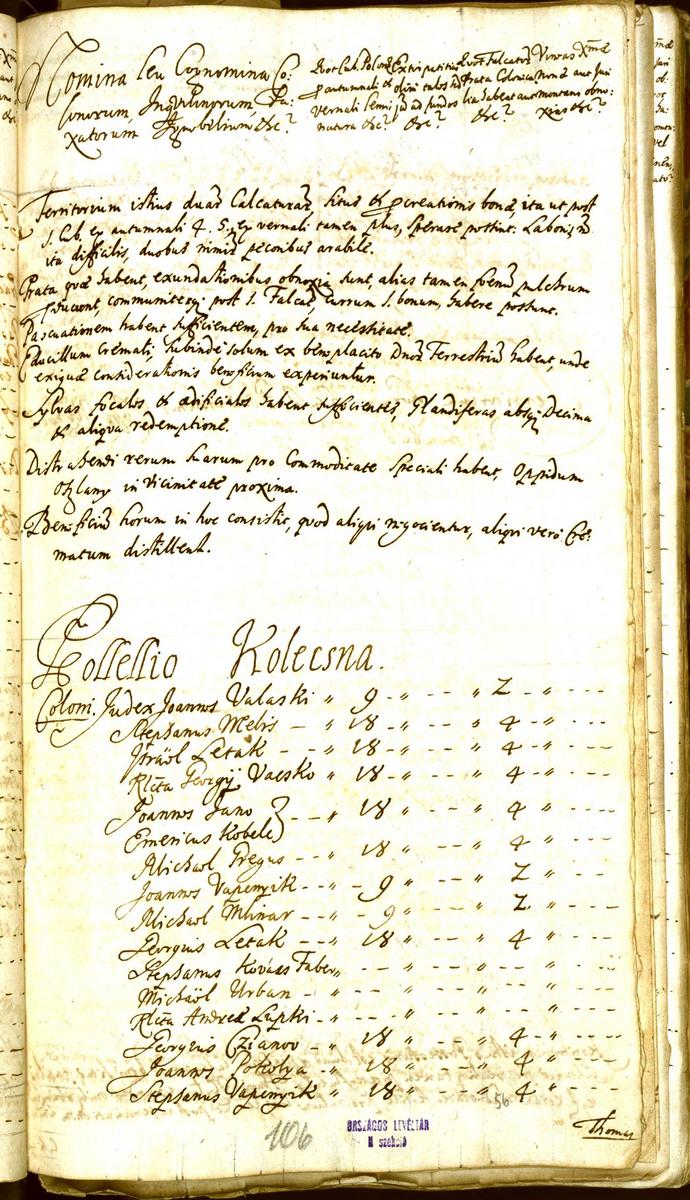 Nomina seu Cognomina Co:
lonorum, Inquilinorum, Ta:
xatorum Ignobilium &c?
Quot Cub. Polon.
autumnali et
vernali semi
natura &c?
Extirpatitia
olim talis
ad fundos
&c?
Quot Falcatr
Prata Colonica
lia habeant
&c?
Vineas
Non aut
montani
&c?
Territorium istius duarũ Calcaturarũ, situs et procreationis bonæ, ita ut post
1. Cub. ex autumnali 4. 5. ex vernali tamen plus, sperare possint. Laboris
ita difficilis, duobus nimis pecoribus arabile.
Prata quæ habent, exundationibus obnoxia sunt, alias tamen foenũ pulchrum
producunt, communiterq; post 1. Falcat. currum 1. bonum, habere possunt.
Pascuationem habent sufficientem, pro sua necessitate.
Educillum cremati, subinde solum ex beneplacito Dnorũ Terrestriũ habent, unde
exiguæ considerationis beneficium experiuntur.
Sylvas focales et ædificiales habent sufficientes, Glandiferas absq; Decima
et aliqua redemptione.
Distrahendi rerum suarum pro Commoditate speciali habent, Oppidum
Oszlany in Vicinitate proxima.
Beneficiũ horum in hoc consistit, quod aliqvi negocientur, aliqvi vero Cre:
matum distillent.
Possessio Kolecsna.
Coloni. Judex Joannes Valaski " 9 - " -- " 2 - " ---
Stephanus Melis - " 18 - " -- " 4 - " ---
Israël Letak - - " 18 - " -- " 4 - " ---
Rlcta Georgij Vacsko " 18 - " -- " 4 - " ---
Joannes Jano } - - " 18 " -- " 4 " ---
Emericus Kobele
Michael Gregus -- " 18 " -- " 4 " ---
Joannes Vapenyik -- " - 9 " -- " 2 " ---
Michael Mlinar -- " - 9 " -- " 2 " ---
Georgius Letak -- " 18 " -- " 4 - " ---
Stephanus Kovács Faber " -- " -- " -- " ---
Michaël Urban - " -- " -- " -- " ---
Rlcta Andreæ Lupki - " -- " -- " -- " ---
Georgius Czianov - " 18 " -- " 4 - " ---
Joannes Potolya - " 18 " -- " 4 " ---
Stephanus Vapenyik " 18 " -- " 4 - " ---
56
Thomas
106
ORSZÁGOS LEVÉLTÁR
N szekció